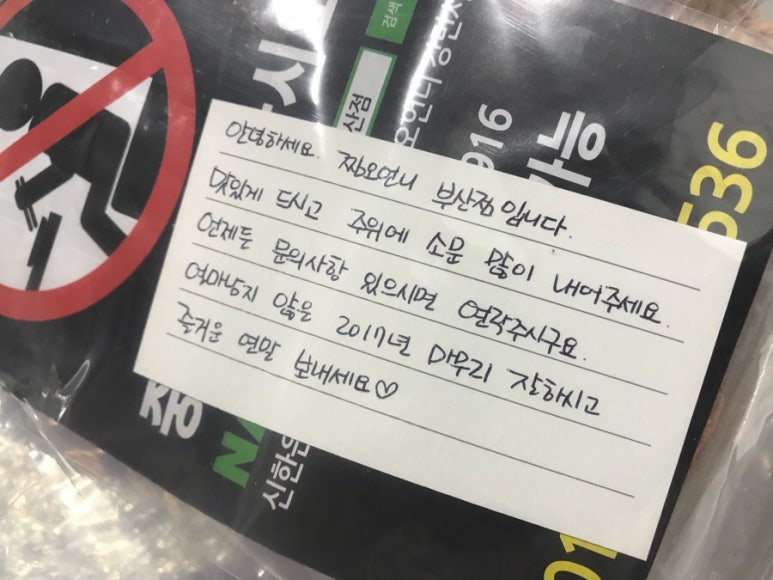 안녕하세요. 짜오언니 부산점입니다.
맛있게 드시고 주위에 소문 많이 내어주세요.
언제든 문의사항 있으시면 연락주시구요.
얼마남지 않은 2017년 마무리 잘하시고
즐거운 연말 보내세요♡
검색
산점
오언니
916
가능
536
중
신한은
01